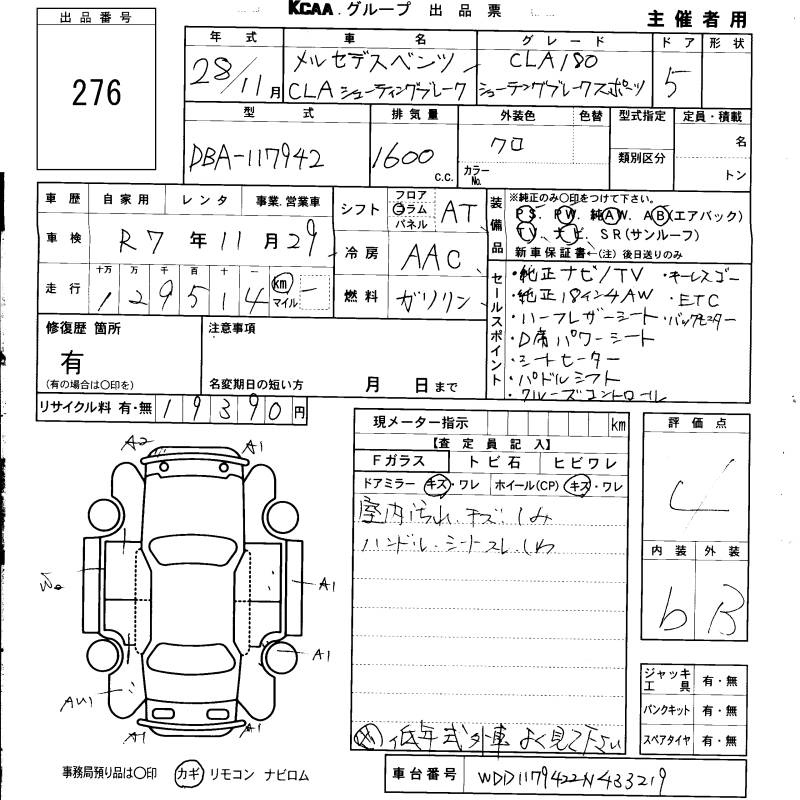 KCAA.グループ 出品票
主催者用
出品番号
276
年式 車名 グレード ドア 形状
28/11月 メルセデスベンツ CLA180 5
CLA シューティングブレーク シューテングブレークスポーツ
型式 排気量 外装色 色替 型式指定 定員・積載
DBA-117942 1600 c.c. クロ カラーNo. 類別区分 名
トン
車歴 自家用 レンタ 事業.営業車
車検 R7年11月29
走行 十万 万 千 百 十 一
129514 km マイル
シフト フロア コラム パネル AT
冷房 AAC
燃料 ガソリン
装備品
※純正のみ〇印をつけて下さい。
PS. PW. 純AW. AB(エアバック)
TV. ナビ. SR(サンルーフ)
新車保証書←(注)後日送りのみ
セールスポイント
・純正ナビ/TV ・キーレスゴー
・純正18インチAW ・ETC
・ハーフレザーシート ・バックモニター
・D席パワーシート
・シートヒーター
・パドルシフト
・クルーズコントロール
修復歴 箇所
有
(有の場合は〇印を)
注意事項
名変期日の短い方 月 日まで
リサイクル料 有・無 19390円
現メーター指示 km
【査定員記入】
Fガラス トビ石 ヒビワレ
ドアミラー キズ・ワレ ホイール(CP) キズ・ワレ
室内汚れ.キズ.しみ
ハンドル.シートスレ.しわ
低年式外車よく見て下さい
評価点
4
内装 外装
b B
ジャッキ工具 有・無
パンクキット 有・無
スペアタイヤ 有・無
A2 A1
A1
A1
AU1
A1 A1
事務局預り品は〇印 カギ リモコン ナビロム
車台番号 WDD1179422N433219